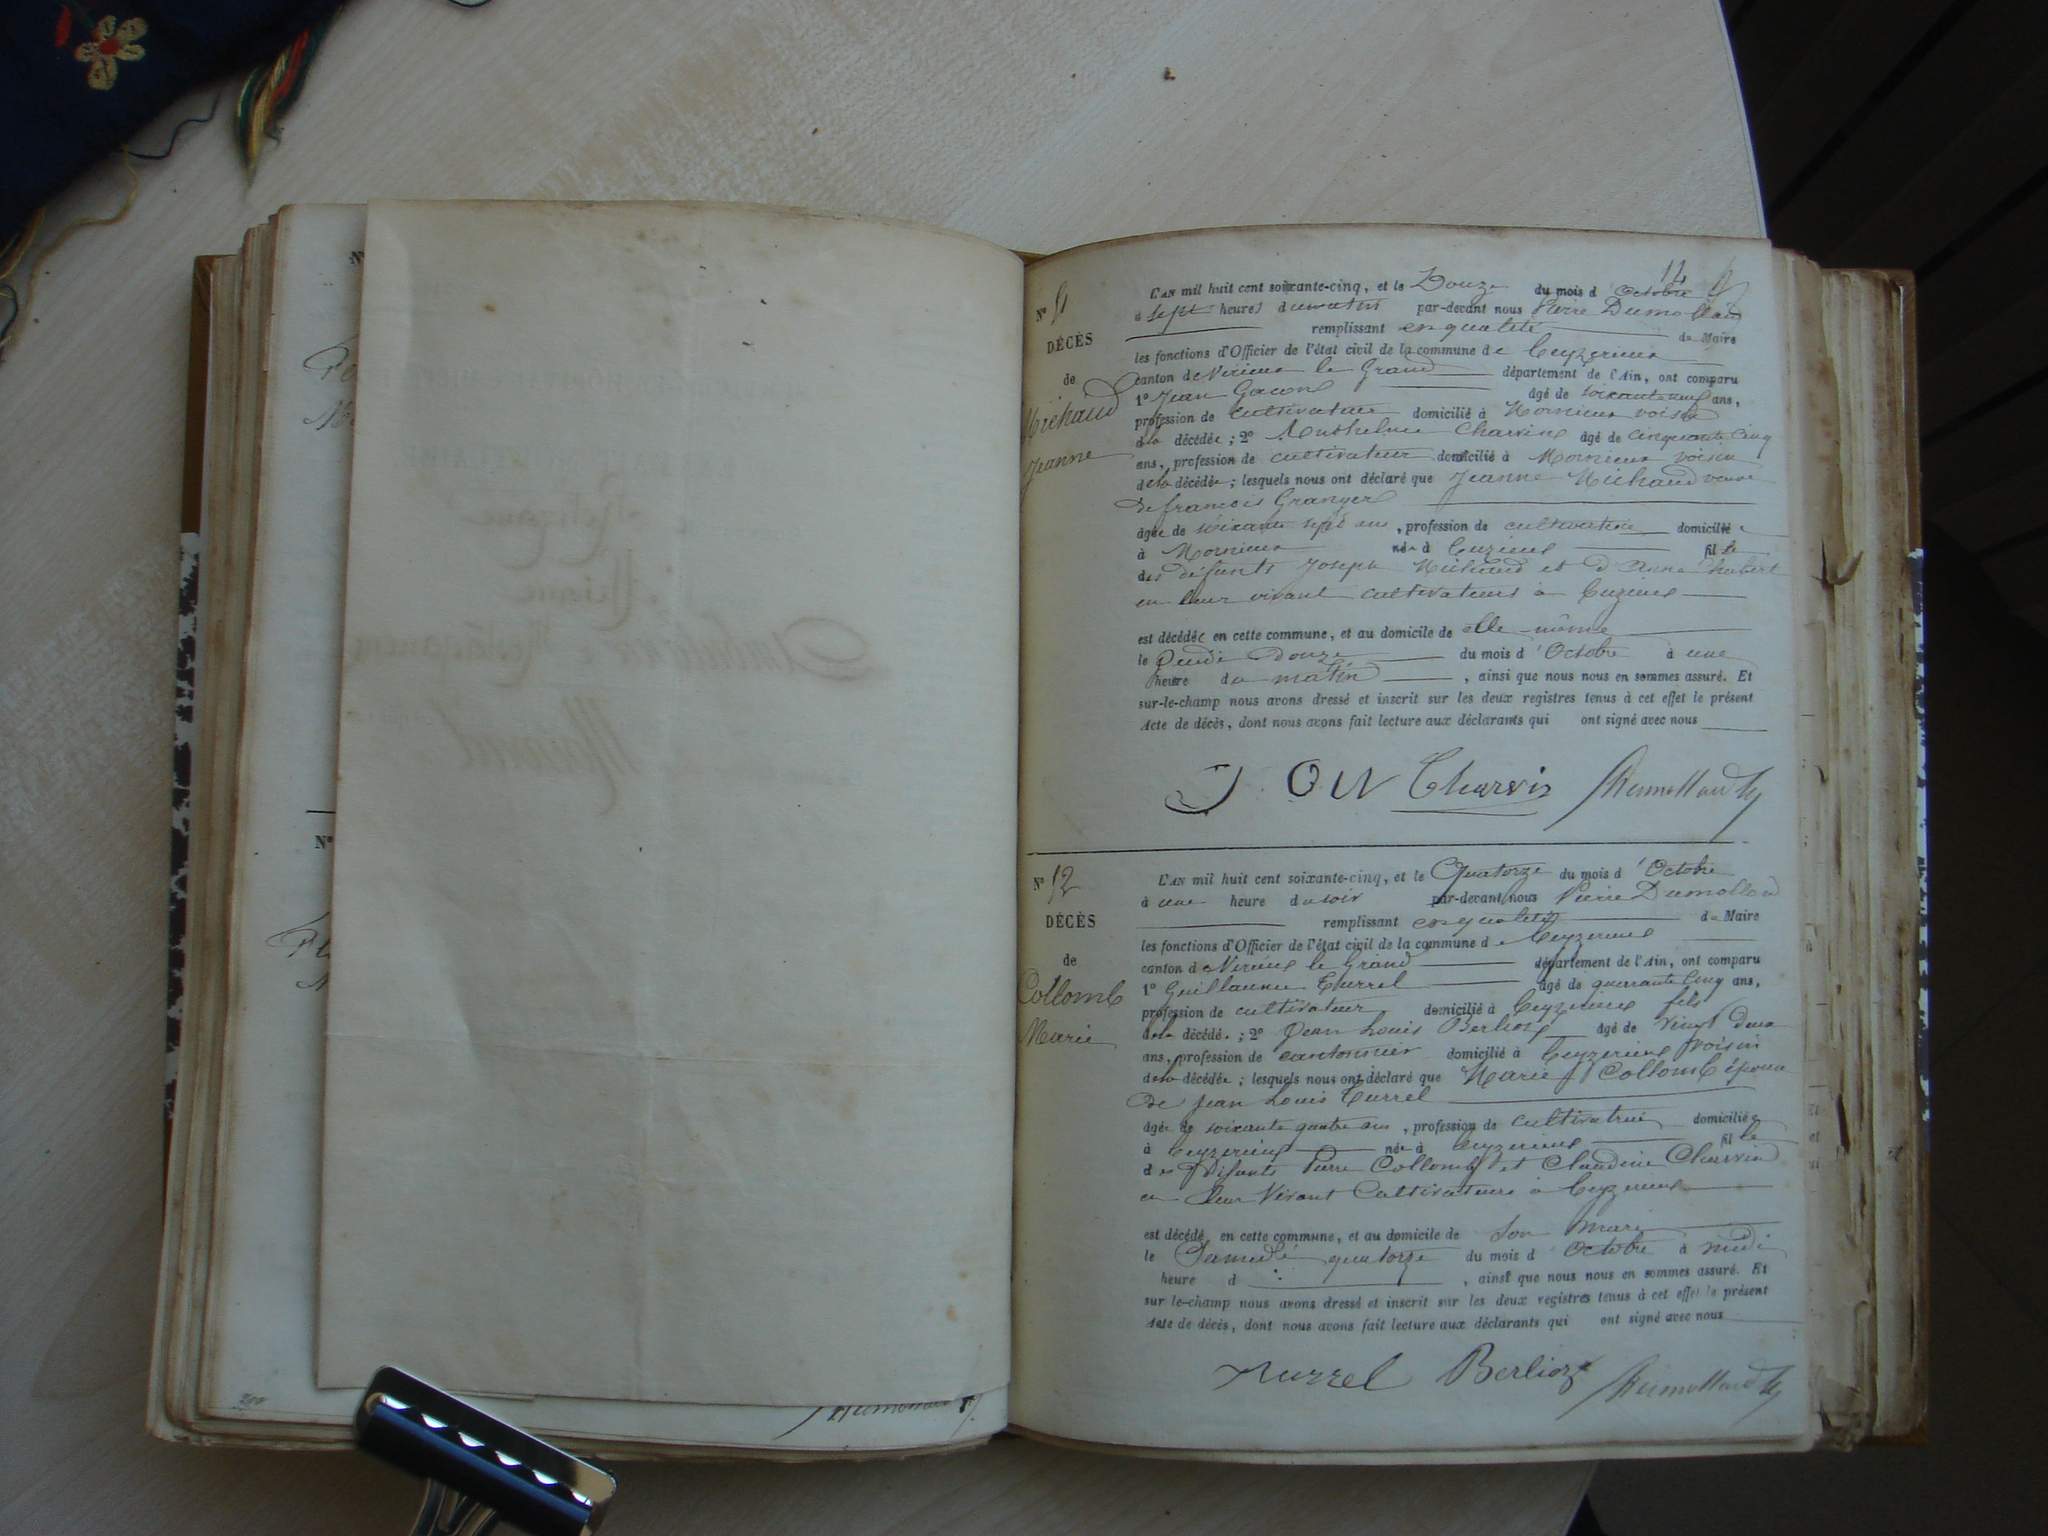 14
N° 51
DÉCÈS
de
Michaud
Jeanne
L'AN mil huit cent soixante-cinq, et le Douze du mois d'Octobre
à sept heures du matin par-devant nous Pierre Dumollard
remplissant en qualité de Maire
les fonctions d'Officier de l'état civil de la commune de Ceyzerieu
canton de Virieu le Grand département de l'Ain, ont comparu
1° Jean Gacon âgé de soixante neuf ans,
profession de cultivateur domicilié à Mornieu voisin
de la décédée ; 2° Anthelme Charvin âgé de cinquante cinq
ans, profession de cultivateur domicilié à Mornieu voisin
de la décédée ; lesquels nous ont déclaré que Jeanne Michaud veuve
de francois Granger
âgée de soixante sept ans, profession de cultivatrice domiciliée
à Mornieu née à Cuzieu fille
des défunts Joseph Michaud et d'Anne
en leur vivant cultivateurs à Cuzieu
est décédée en cette commune, et au domicile de elle même
le Jeudi Douze du mois d'Octobre à une
heure du matin, ainsi que nous nous en sommes assuré. Et
sur-le-champ nous avons dressé et inscrit sur les deux registres tenus à cet effet le présent
Acte de décès, dont nous avons fait lecture aux déclarants qui ont signé avec nous
Charvin Dumollard
N° 52
DÉCÈS
de
Collomb
Marie
L'AN mil huit cent soixante-cinq, et le Quatorze du mois d'Octobre
à une heure du soir par-devant nous Pierre Dumollard
remplissant en qualité de Maire
les fonctions d'Officier de l'état civil de la commune de Ceyzerieu
canton de Virieu le Grand département de l'Ain, ont comparu
1° Guillaume Turrel âgé de quarante cinq ans,
profession de cultivateur domicilié à Ceyzerieu fils
de la décédée ; 2° Jean Louis Berlioz âgé de vingt deux
ans, profession de cantonnier domicilié à Ceyzerieu voisin
de la décédée ; lesquels nous ont déclaré que Marie Collomb épouse
de Jean Louis Turrel
âgée de soixante quatre ans, profession de cultivatrice domiciliée
à Ceyzerieu née à Ceyzerieu fille
des Défunts Pierre Collomb et Claudine Charvin
en leur Vivant Cultivateurs à Ceyzerieu
est décédé en cette commune, et au domicile de son mari
le Samedi quatorze du mois d'Octobre à midi
heure d , ainsi que nous nous en sommes assuré. Et
sur-le-champ nous avons dressé et inscrit sur les deux registres tenus à cet effet le présent
Acte de décès, dont nous avons fait lecture aux déclarants qui ont signé avec nous
Turrel Berlioz Dumollard